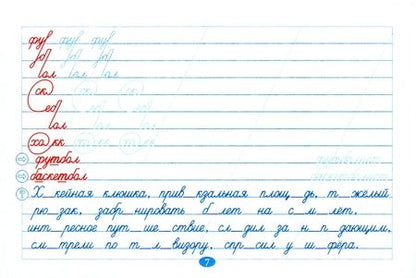 фут фут фут
бо бо бо
бол бол бол
ск ск ск
еб
бол
хо кк
футбол
баскетбол
Х_кейная клюшка, прив_кзальная площ_дь, т_жёлый
рю_зак, забр_нировать б_лет на с_м_лет,
инт_ресное пут_ше_ствие, сл_дил за н_п_дающим,
см_трели по т_л_визору, спр_сил у ш_фёра.
7